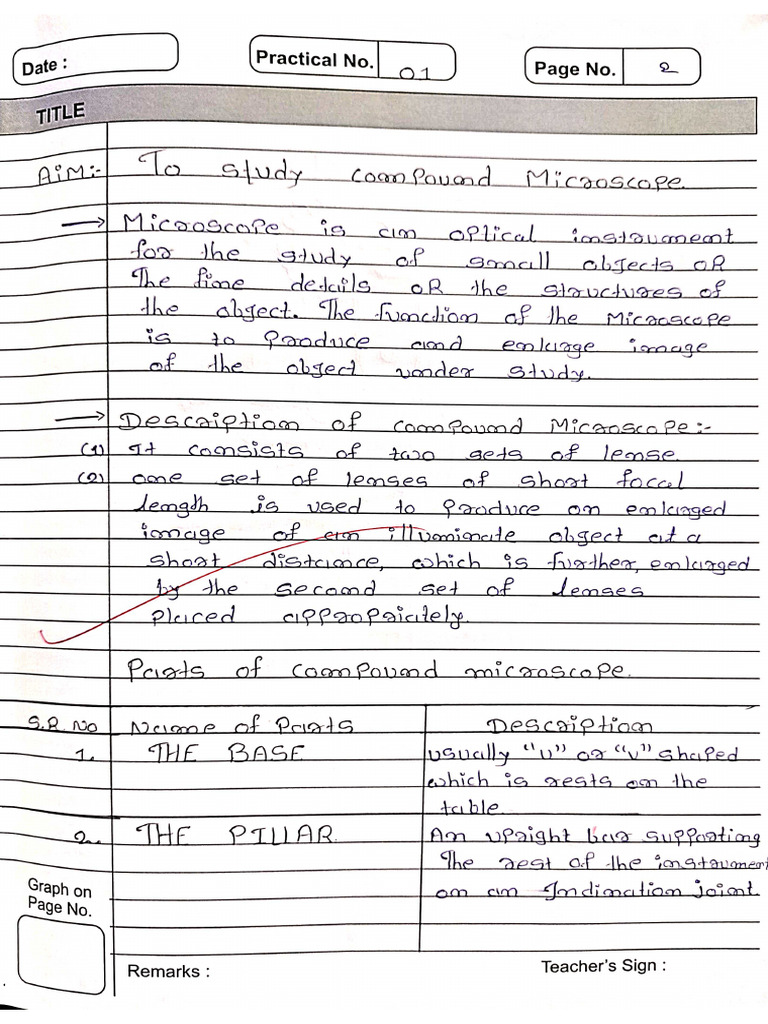 Date :
Practical No. 01
Page No. 2
TITLE
AIM:- To study compound Microscope.
→ Microscope is an optical instrument
for the study of small objects OR
The fine details OR the structures of
the object. The function of the Microscope
is to produce and enlarge image
of the object under study.
→ Description of compound Microscope:-
(1) It consists of two sets of lense.
(2) one set of lenses of short focal
length is used to produce an enlarged
image of an illuminate object at a
short distance, which is further, enlarged
by the second set of lenses
placed appropriately.
Parts of compound microscope.
S.R. No Name of Parts Description
1. THE BASE usually "U" or "V" shaped
which is rests on the
table.
2. THE PILLAR. An upright bar supporting
The rest of the instrument
on an Indination joint
Graph on
Page No.
Remarks :
Teacher's Sign :